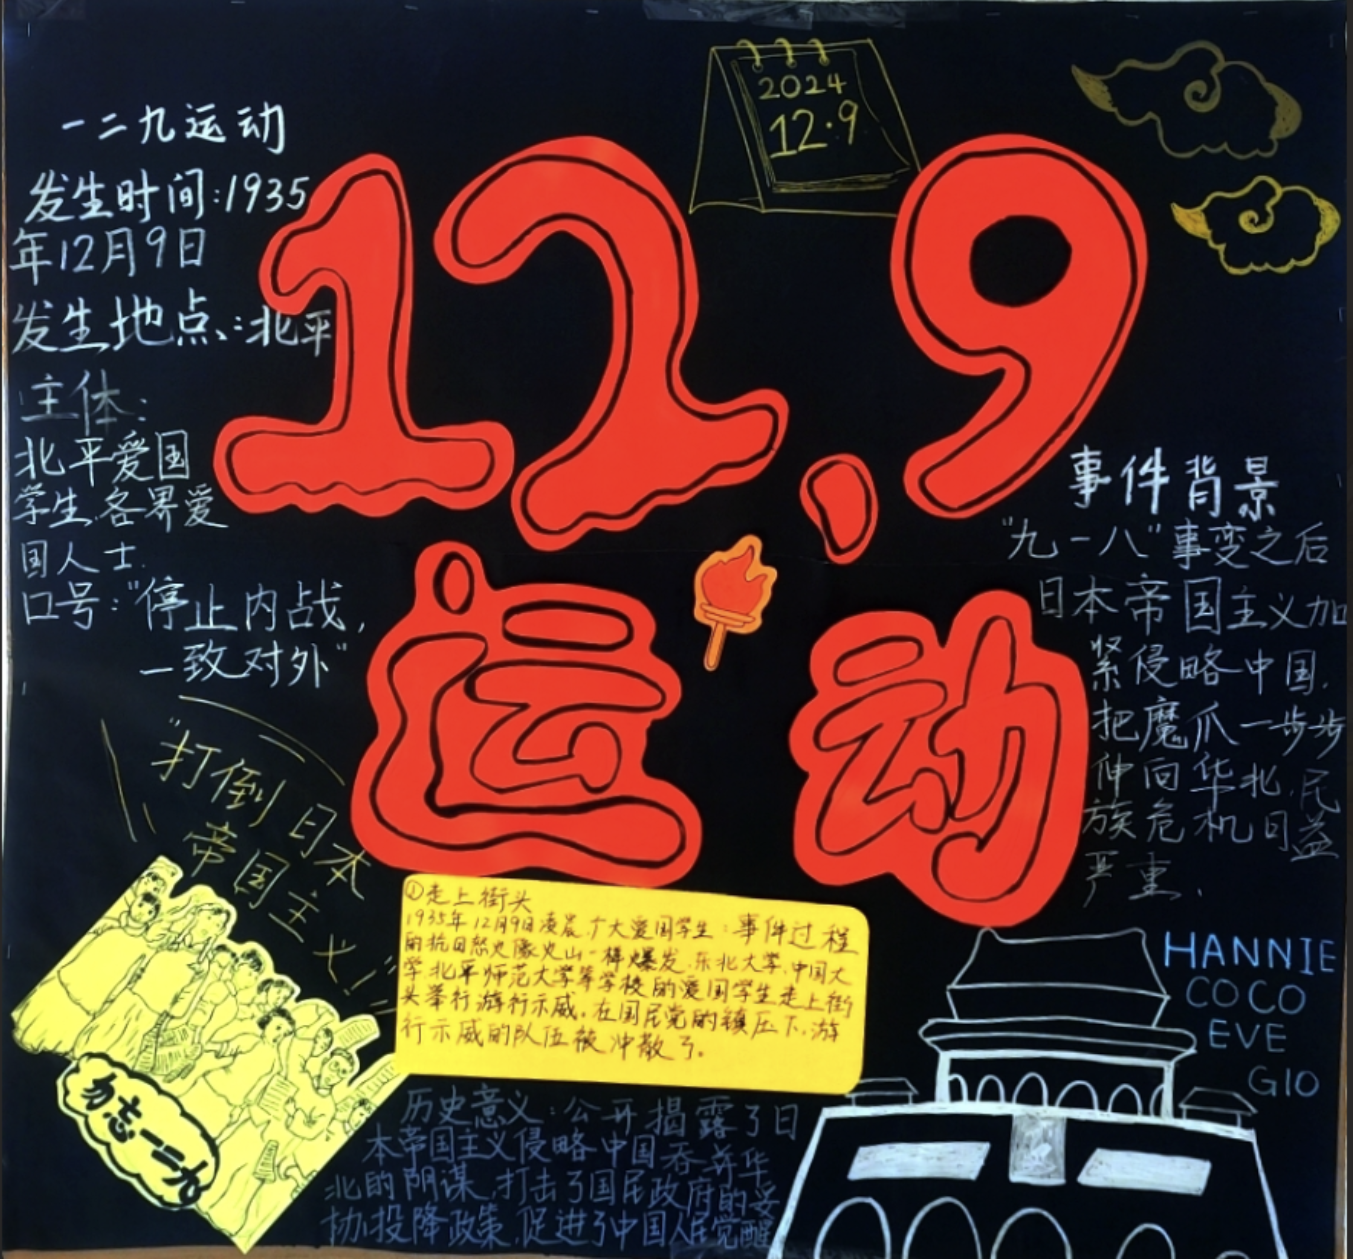 2024
12·9
一二九运动
发生时间:1935
年12月9日
发生地点:北平
主体:
北平爱国
学生,各界爱
国人士.
口号:"停止内战,
一致对外"
12.9
运动
事件背景
"九一八"事变之后
日本帝国主义加
紧侵略中国,
把魔爪一步步
伸向华北,民
族危机日益
严重.
"打倒日本
帝国主义!"
勿忘一二九
①走上街头
1935年12月9日凌晨,广大爱国学生:事件过程
的抗日怒火像火山一样爆发.东北大学,中国大
学北平师范大学等学校的爱国学生走上街
头举行游行示威.在国民党的镇压下,游
行示威的队伍被冲散了。
历史意义:公开揭露了日
本帝国主义侵略中国吞并华
北的阴谋,打击了国民政府的妥
协投降政策,促进了中国人民觉醒
HANNIE
COCO
EVE
GIO